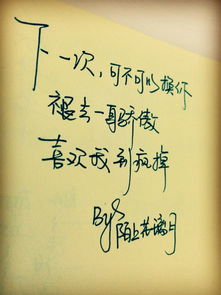 下一次,可不可以换你
褪去一身骄傲
喜欢我到疯掉
By:陌上若漓月